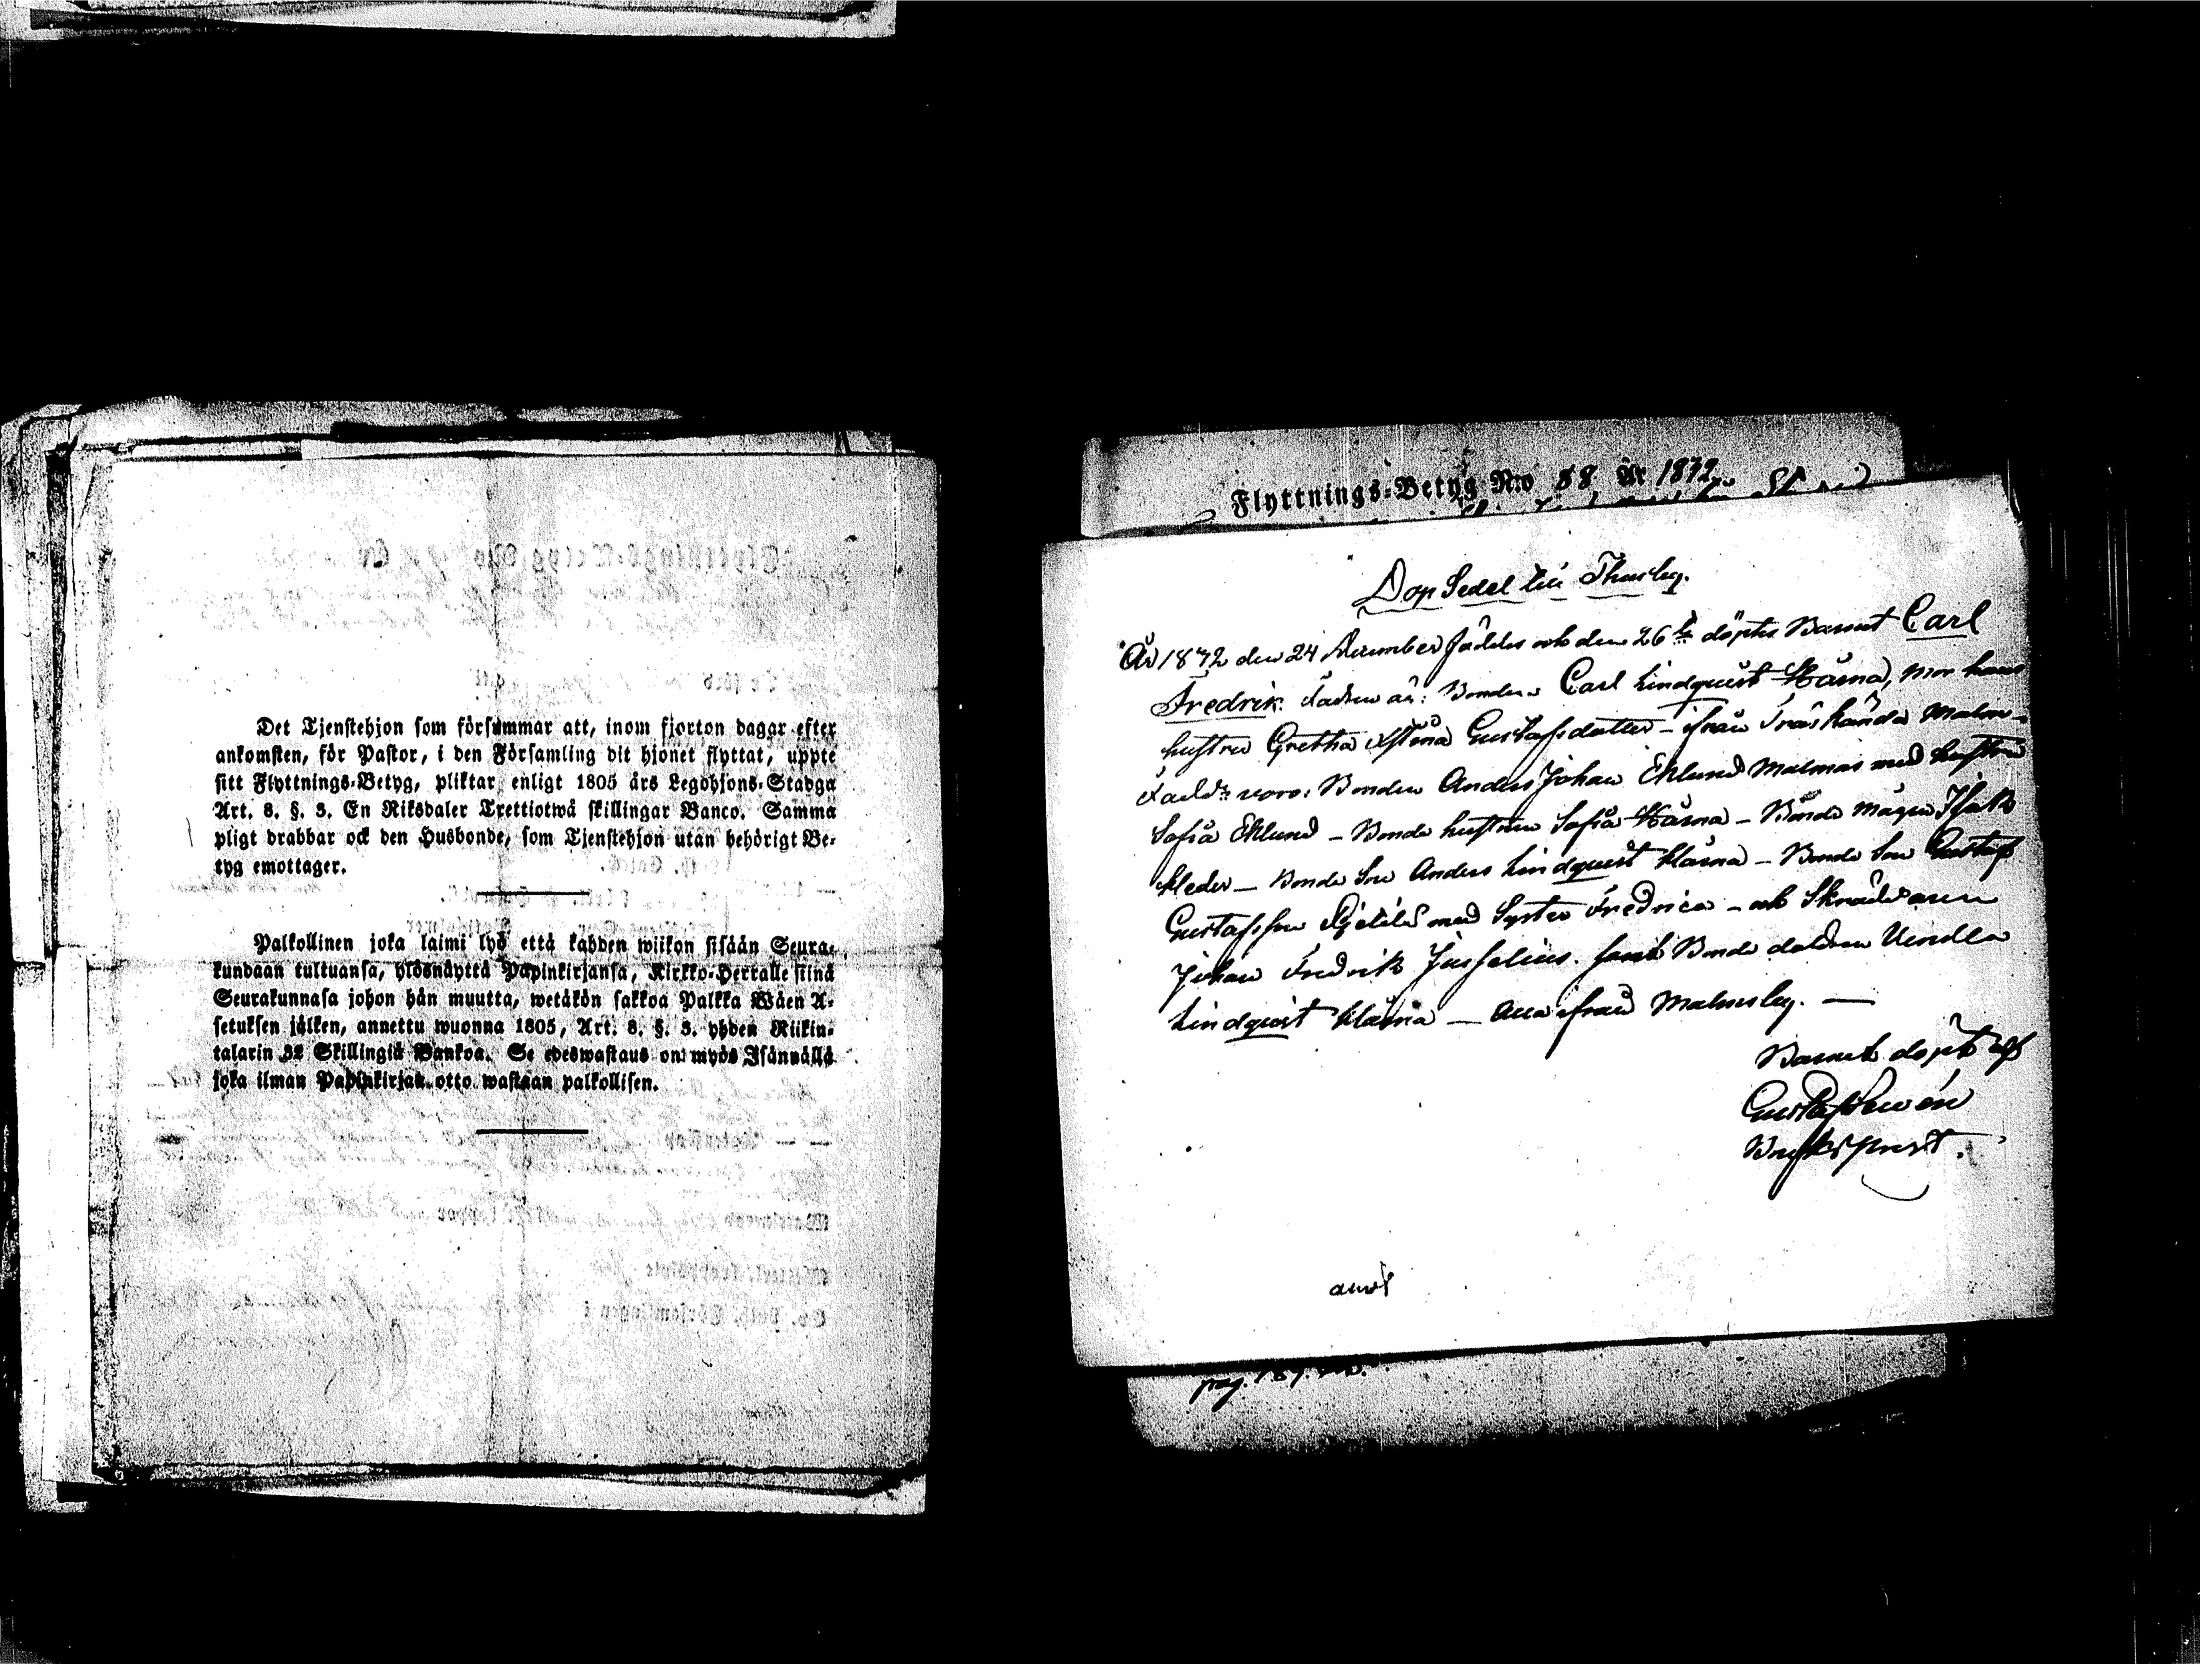 Det Tjenstehjon som försummar att, inom fjorton dagar efter
ankomsten, för Pastor, i den Församling dit hjonet flyttat, uppte
sitt Flyttnings-Betyg, pliktar enligt 1805 års Legohjons-Stadga
Art. 8. §. 3. En Riksdaler Trettiotwå skillingar Banco. Samma
pligt drabbar ock den Husbonde, som Tjenstehjon utan behörigt Be-
tyg emottager.
Palkollinen joka laimi lyö että kahden wiikon sisään Seura-
kundaan tultuansa, ylösnäyttä Papinkirjansa, Kirkko-Herralle siinä
Seurakunnasa johon hän muutta, wetäkön sakkoa Palkka Wäen A-
setuksen jälken, annettu wuonna 1805, Art. 8. §. 3. yhden Riikin-
talarin 32 Skillingiä Bankoa. Se edeswastaus on myös Isännällä
joka ilman Papinkirjan otto wastaan palkollisen.
Flyttnings-Betyg N:o 58 År 1872
Dop Sedel till Thusby.
År 1872 den 24 December föddes och den 26te döptes Barnet Carl
Fredrik. Fadren är: Bonden Carl Lindquist Klärna, mor hans
hustru Gretha Gustafsdotter - ifrån Träskända Malm-
Fadd:r voro: Bonden Anders Johan Eklund Malmas med hustru
Sofia Eklund - Bonde hustrun Sofia Klärna - Bonde mågen Isak
Kleder - Bonde Son Anders Lindquist Klärna - Bonde Son Gustaf
Gustafsson med Syster Fredrica - och Skräddaren
Johan Fredrik Jusselius. samt Bonde dottren Vendla
Lindqvist Klärna - alla ifrån Malmsby.
Barnet döpt af
Gustaf
Brukspred.
pag. 187.